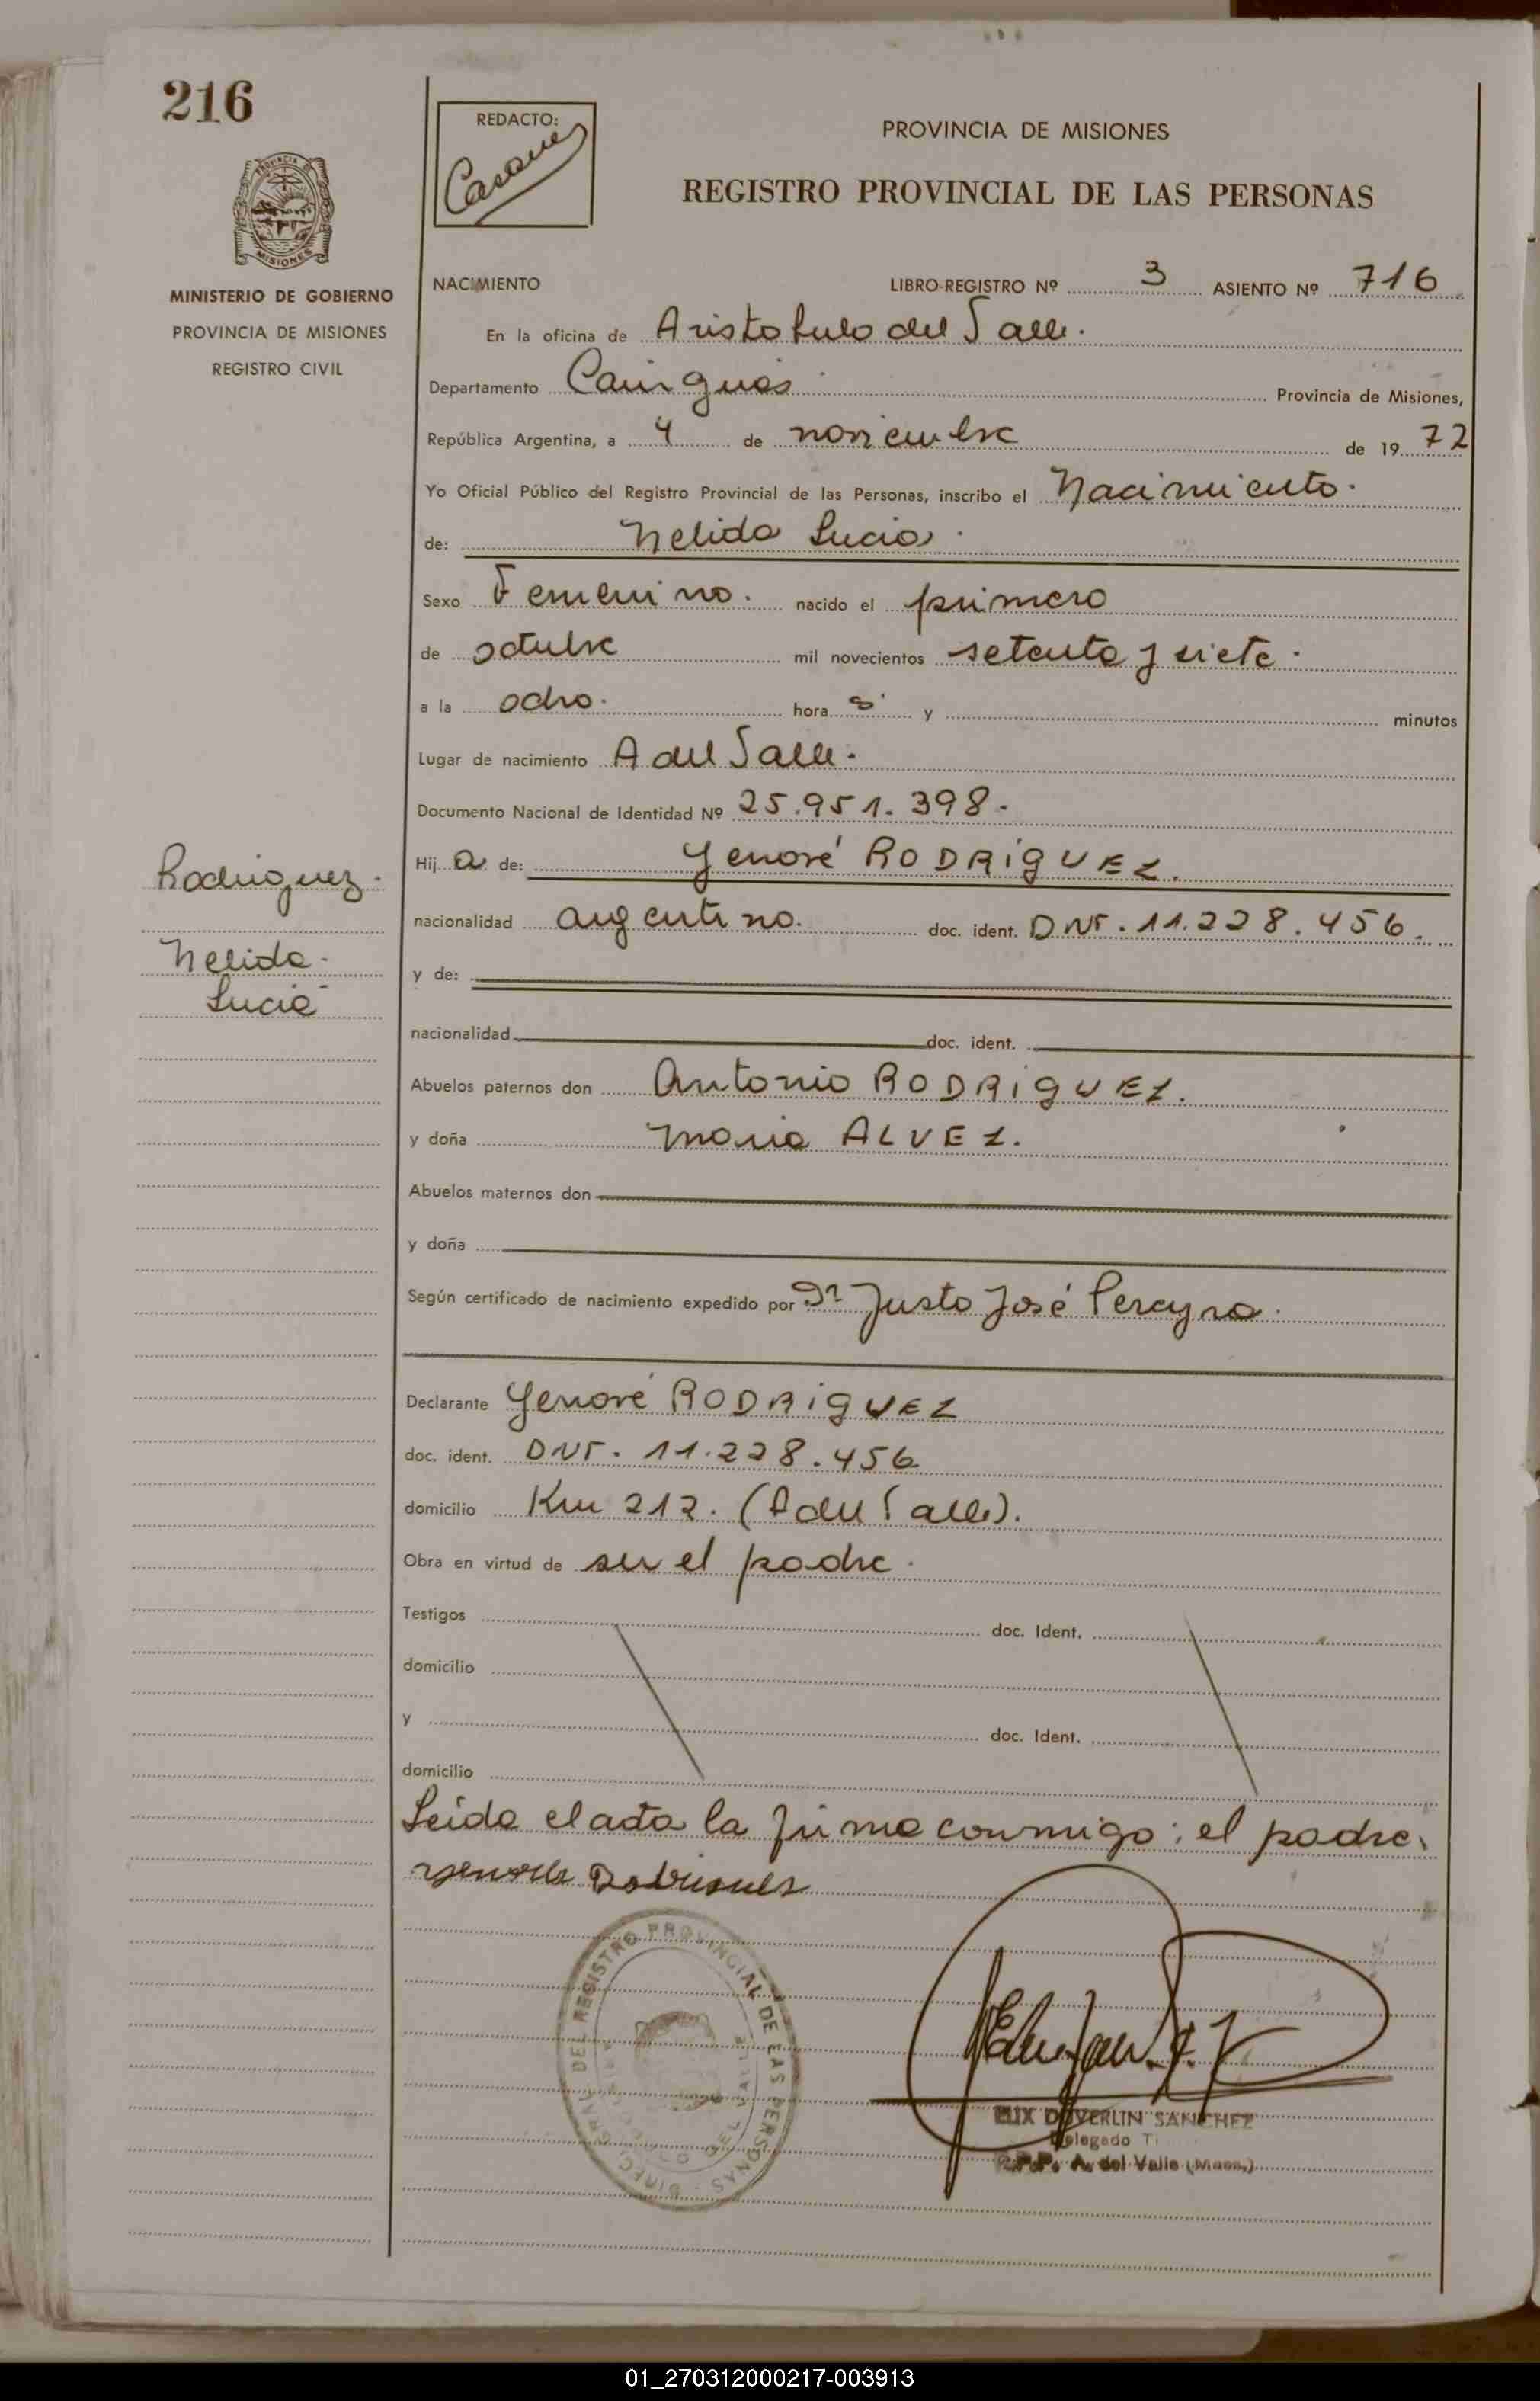 216
REDACTO:
PROVINCIA DE MISIONES
REGISTRO PROVINCIAL DE LAS PERSONAS
PROVINCIA DE
MISIONES
MINISTERIO DE GOBIERNO
PROVINCIA DE MISIONES
REGISTRO CIVIL
NACIMIENTO LIBRO-REGISTRO Nº 3 ASIENTO Nº 716
En la oficina de Aristobulo del Valle.
Departamento Cainguás Provincia de Misiones,
República Argentina, a 4 de noviembre de 19 72
Yo Oficial Público del Registro Provincial de las Personas, inscribo el Nacimiento.
de: Nelida Lucia.
Sexo Femenino. nacido el primero
de octubre mil novecientos setenta y siete.
a la ocho. hora 8 y minutos
Lugar de nacimiento A del Valle.
Documento Nacional de Identidad Nº 25.951.398.
Hij a de: Yenoré RODRiGUEZ.
Rodriguez.
nacionalidad argentino. doc. ident. DNI. 11.228.456.
Nelida
Lucia
y de:
nacionalidad doc. ident.
Abuelos paternos don Antonio RODRiGUEZ.
y doña Maria ALVEZ.
Abuelos maternos don
y doña
Según certificado de nacimiento expedido por Dr Justo José Pereyra.
Declarante Yenoré RODRiGUEZ
doc. ident. DNI. 11.228.456
domicilio Km 212. (A del Valle).
Obra en virtud de ser el padre.
Testigos doc. Ident.
domicilio
y doc. Ident.
domicilio
Leida el acta la firma conmigo: el padre.
DIREC. GRAL. DEL REGISTRO PROVINCIAL DE LAS PERSONAS
DEL VALLE
DUVERLIN SANCHEZ
Delegado
A. del Valle (Mnes.)
01_270312000217-003913